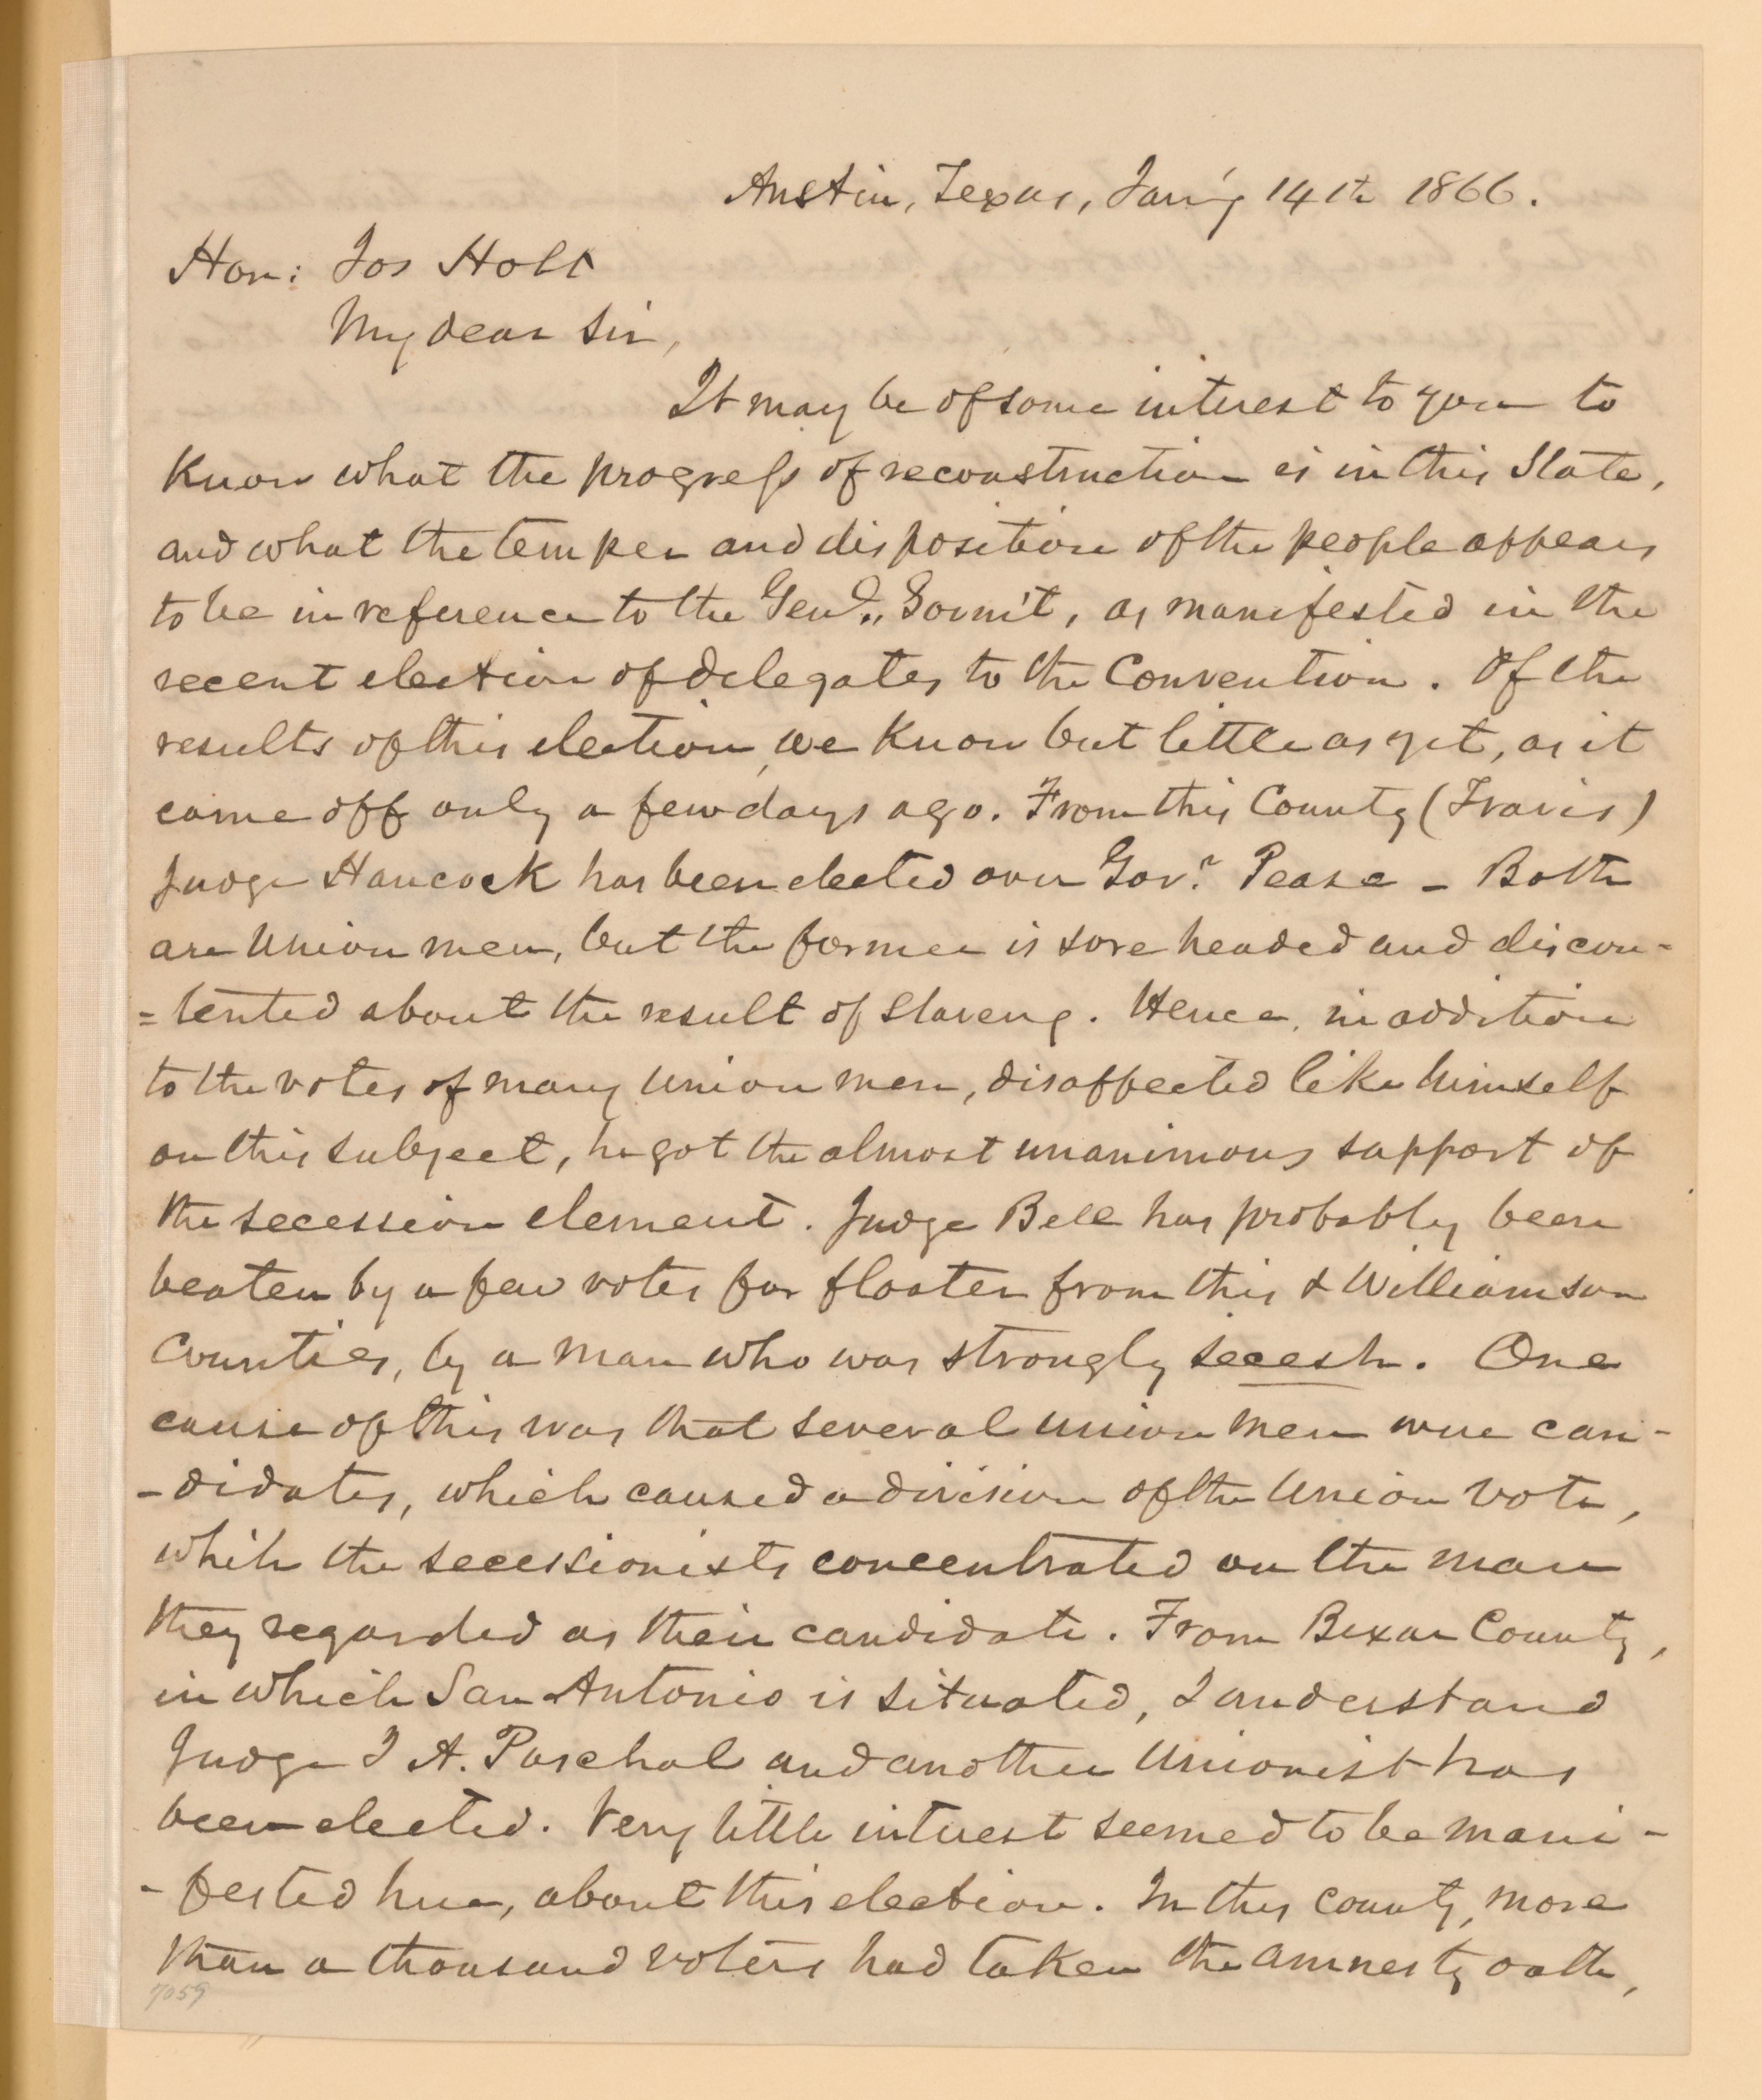 Austin, Texas, Jan'y 14th 1866.
Hon: Jos Holt
My dear Sir,
It may be of some interest to you to
know what the progress of reconstruction is in this State,
and what the temper and disposition of the people appears
to be in reference to the Genl. Govm't, as manifested in the
recent election of delegates to the Convention. Of the
results of this election, we know but little as yet, as it
came off only a few days ago. From this County (Travis)
Judge Hancock has been elected over Gov.r Pease - Both
are Union men, but the former is sore headed and discon-
=tented about the result of slavery. Hence, in addition
to the votes of many Union men, disaffected like himself
on this subject, he got the almost unanimous support of
the secession element. Judge Bell has probably been
beaten by a few votes for floater from this & Williamson
Counties, by a man who was strongly secesh. One
cause of this was that several Union men were can-
-didates, which caused a division of the Union vote,
while the secessionists concentrated on the man
they regarded as their candidate. From Bexar County,
in which San Antonio is situated, I understand
Judge I A. Paschal and another Unionist has
been elected. Very little interest seemed to be mani-
-fested here, about this election. In this county, more
than a thousand voters had taken the amnesty oath,
7059